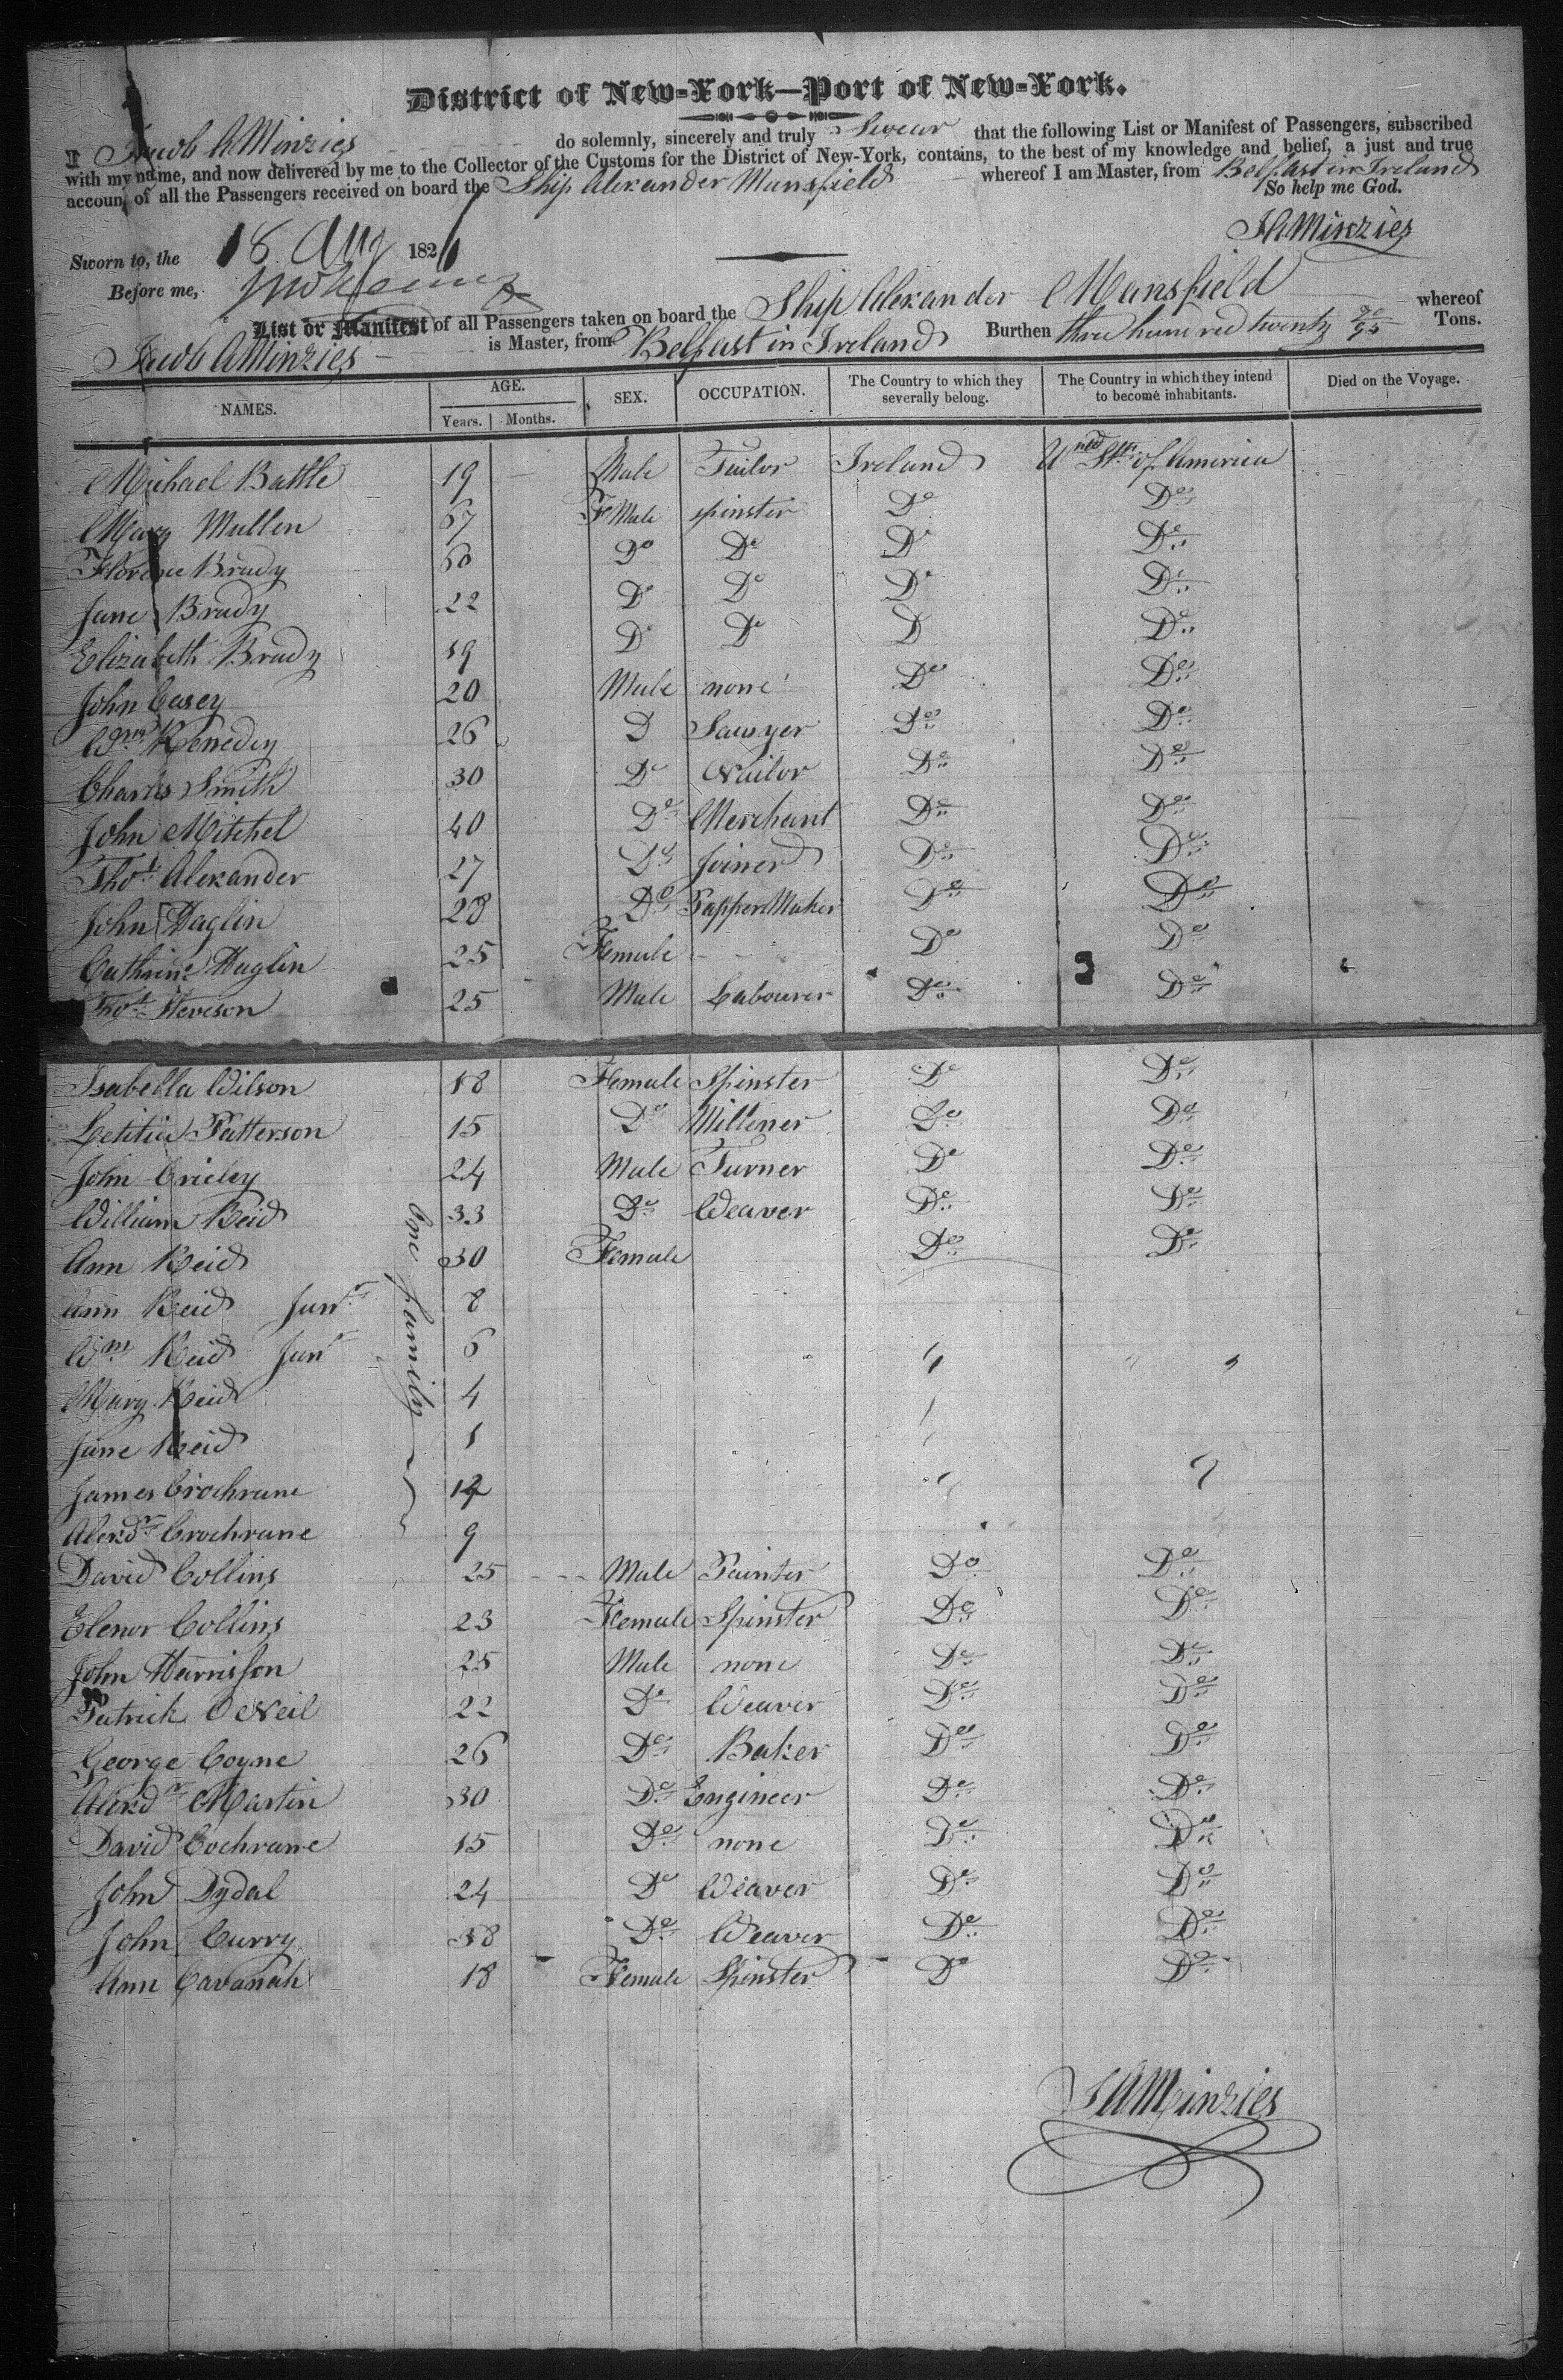 District of New-York—Port of New-York.
I Jacob A Minzies do solemnly, sincerely and truly Swear that the following List or Manifest of Passengers, subscribed
with my name, and now delivered by me to the Collector of the Customs for the District of New-York, contains, to the best of my knowledge and belief, a just and true
account of all the Passengers received on board the Ship Alexander Mansfield whereof I am Master, from Belfast in Ireland
So help me God.
JAMinzies
Sworn to, the 18 Aug 182
Before me,
List or Manifest of all Passengers taken on board the Ship Alexander Mansfield whereof
Jacob A Minzies is Master, from Belfast in Ireland Burthen three hundred twenty 70/95 Tons.
NAMES. AGE. Years. Months. SEX. OCCUPATION. The Country to which they severally belong. The Country in which they intend to become inhabitants. Died on the Voyage.
Michael Battle 19 Male Tailor Ireland Uned Sts of America
Mary Mullen 67 FMale spinster Do Do
Florence Brady 60 Do Do Do Do
Jane Brady 22 Do Do Do Do
Elizabeth Brady 19 Do Do D Do
John Casey 20 Male none Do Do
Wm Kennedy 26 D Sawyer Do Do
Charles Smith 30 Do Nailor Do Do
John Mitchel 40 Do Merchant Do Do
Thos Alexander 27 Do Joiner Do Do
John Haglin 28 Do Papper Maker Do Do
Cathrine Haglin 25 Female Do Do
Thos Steveson 25 Male Labourer Do Do
Isabella Wilson 18 Female Spinster Do Do
Letitia Patterson 15 Do Milliner Do Do
John Crieley 24 Male Turner Do Do
William Reid 33 Do Weaver Do Do
Ann Reid 30 Female Do Do
Ann Reid Junr 8
Wm Reid Junr 6
Mary Reid 4
Jane Reid 1
One family
James Crochrane 12
Alexdr Crochrane 9
David Collins 25 Male Painter Do Do
Elenor Collins 23 Female Spinster Do Do
John Harrisson 25 Male none Do Do
Patrick O Neil 22 Do Weaver Do Do
George Coyne 26 Do Baker Do Do
Alexdr Martin 30 Do Engineer Do Do
David Cochrane 15 Do none Do Do
John Dydal 24 Do Weaver Do Do
John Curry 38 Do Weaver Do Do
Ann Cavanah 18 Female Spinster Do Do
JAMinzies